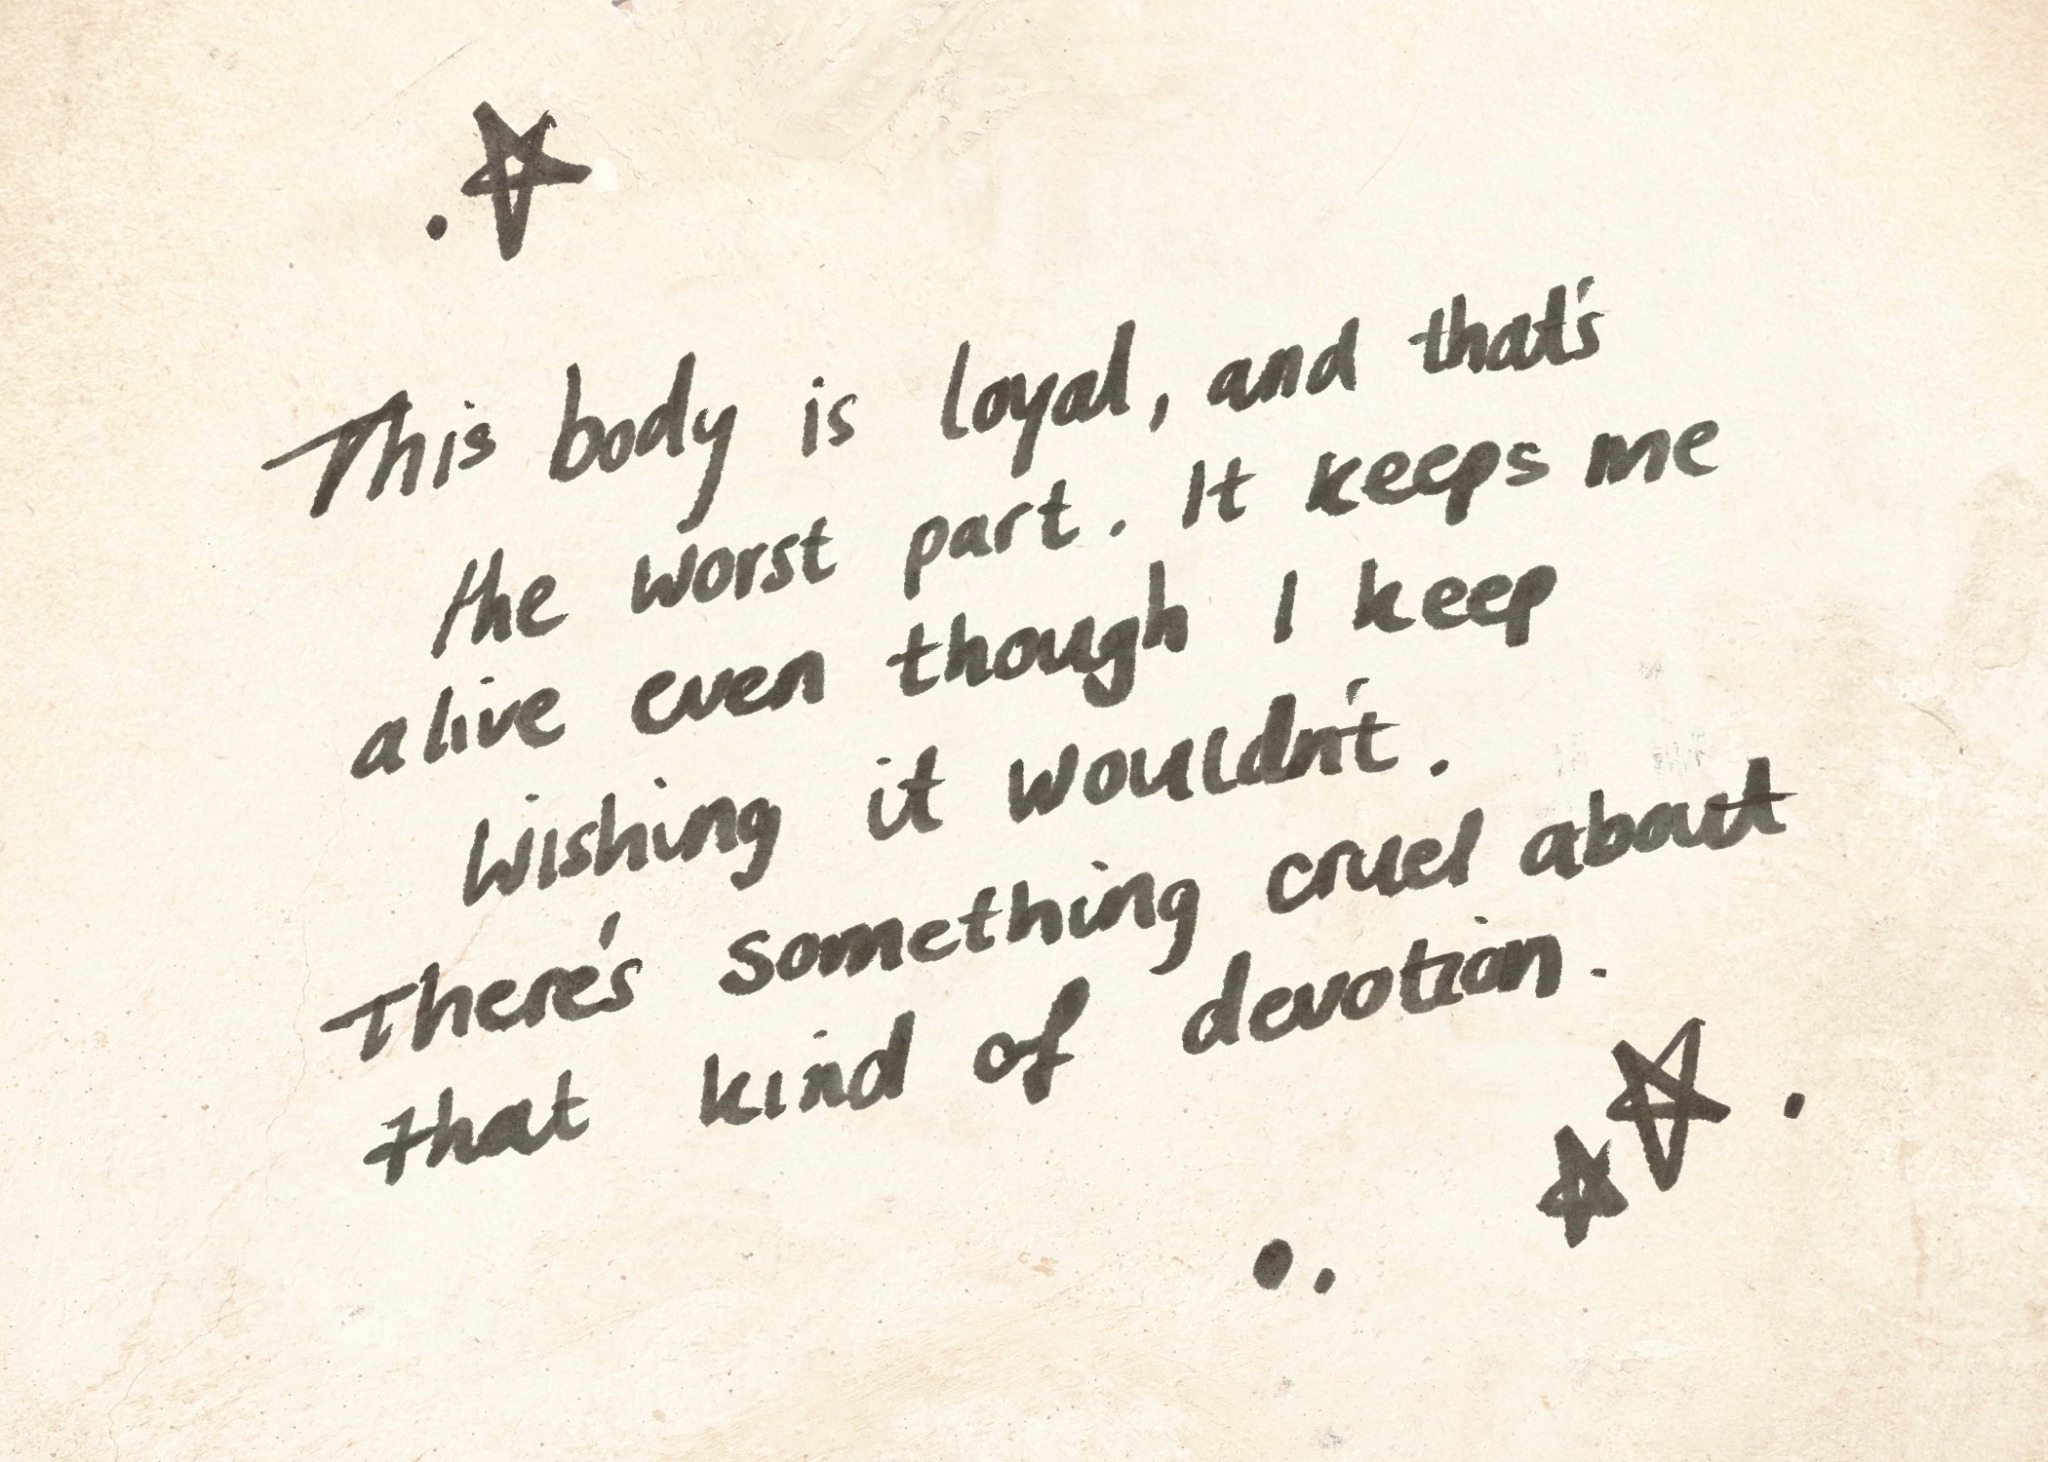 This body is loyal, and that's
the worst part. It keeps me
alive even though I keep
wishing it wouldn't.
There's something cruel about
that kind of devotion.